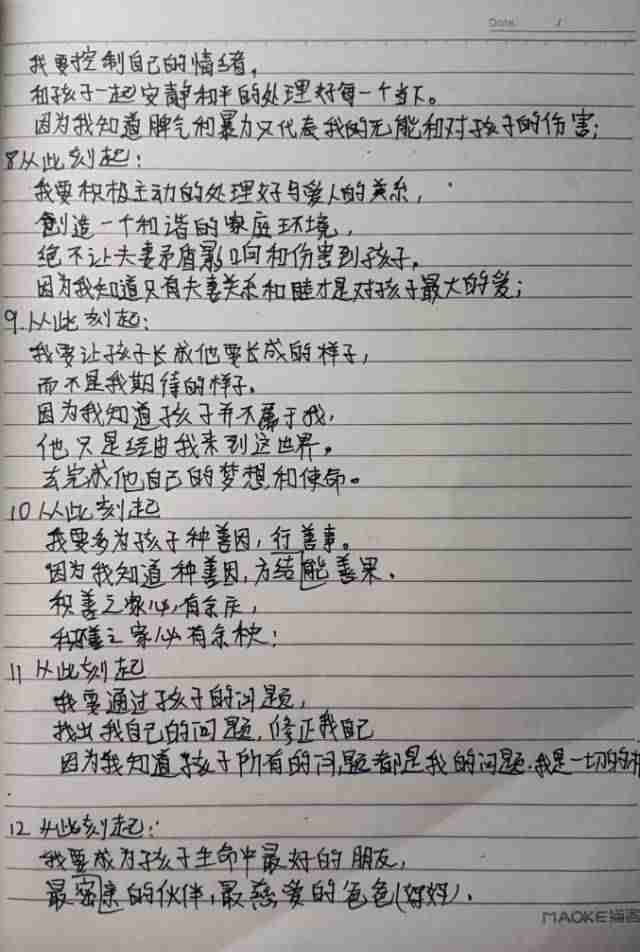 Date. /
我要控制自己的情绪,
和孩子一起安静和平的处理好每一个当下。
因为我知道脾气和暴力只代表我的无能和对孩子的伤害;
8从此刻起:
我要积极主动的处理好与爱人的关系,
创造一个和谐的家庭环境,
绝不让夫妻矛盾影响和伤害到孩子,
因为我知道只有夫妻关系和睦才是对孩子最大的爱;
9.从此刻起:
我要让孩子长成他要长成的样子,
而不是我期待的样子。
因为我知道孩子并不属于我,
他只是经由我来到这世界。
去完成他自己的梦想和使命。
10从此刻起
我要多为孩子种善因,行善事。
因为我知道种善因,方结能善果。
积善之家必有余庆,
积善之家必有余秧;
11从此刻起
我要通过孩子的问题,
找出我自己的问题,修正我自己
因为我知道孩子所有的问题都是我的问题.我是一切的
12从此刻起:
我要成为孩子生命中最好的朋友,
最密集的伙伴,最慈爱的爸爸(妈妈).
MAOKE猫客